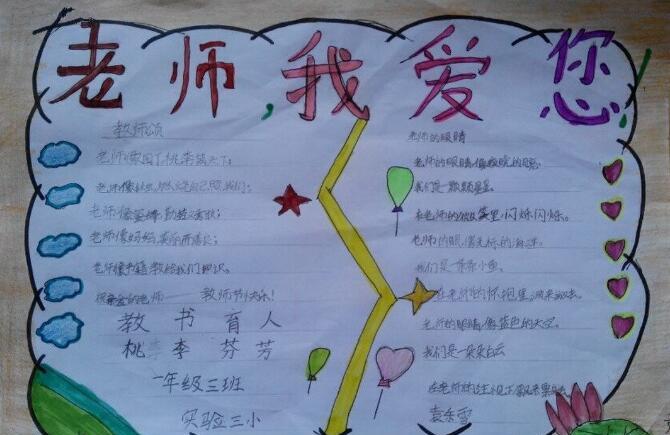 老师,我爱您
教师颂
老师像园丁桃李满天下;
老师像蜡烛,燃烧自己照我们;
老师像
老师像妈妈
老师像书籍教给我们知识。
的老师——教师节快乐!
教 书 育 人
桃 李 芬 芳
一年级三班
实验三小
老师的眼睛
老师的眼睛像夜晚的
我们是一颗颗星星。
在老师的 里闪烁闪烁。
老师的眼像无标的海洋。
我们是一条条小鱼
在老师的怀抱里游来游去。
老师的眼睛像蓝色的天空。
我们是一朵朵白云
在老师的 下飘来飘去。
袁